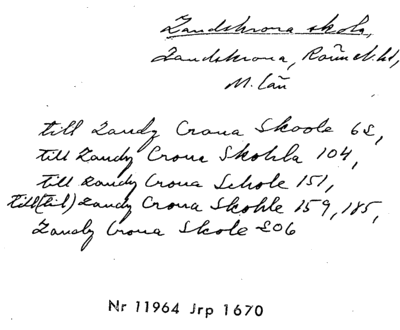 Landskrona skola,
Landskrona, Rönneb. hd,
M. län
till Landz Crona Skoole 68,
till Landz Crona Skohla 104,
till Landz Crona Schole 151,
till(til) Landz Crona Skohle 159, 185,
Landz Crona Skole 206
Nr 11964 Jrp 1670